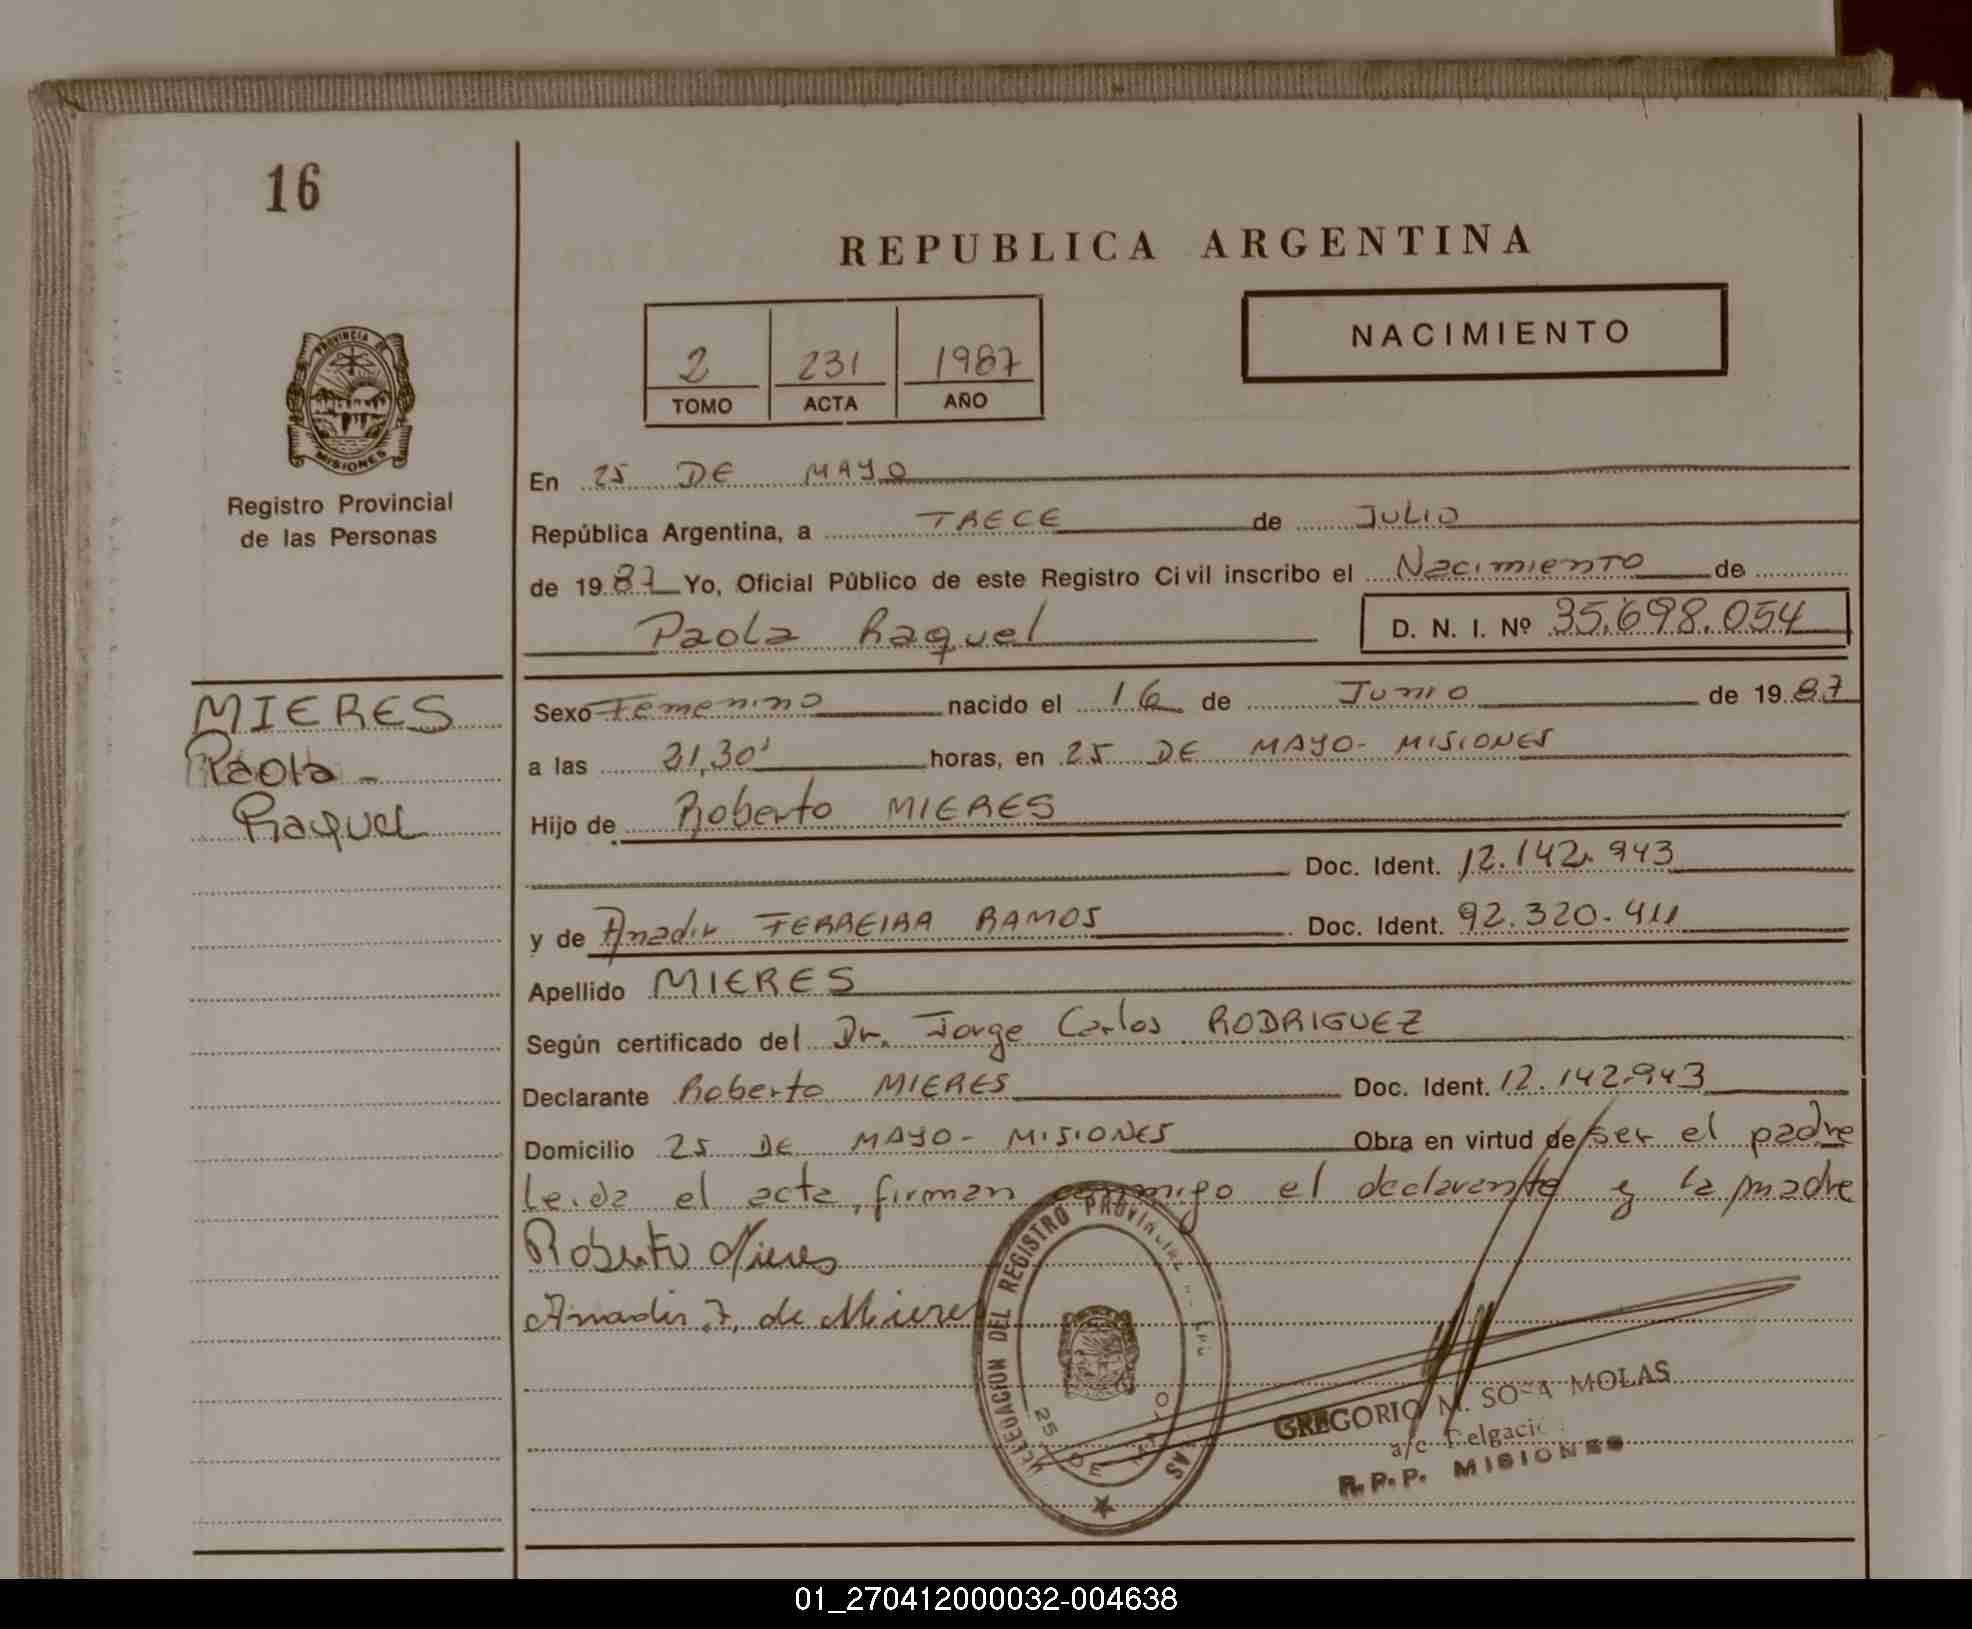 16
REPUBLICA ARGENTINA
NACIMIENTO
2 231 1987
TOMO ACTA AÑO
PROVINCIA DE
MISIONES
Registro Provincial
de las Personas
En 25 DE MAYO
República Argentina, a TRECE de JULIO
de 1987 Yo, Oficial Público de este Registro Civil inscribo el Nacimiento de
Paola Raquel D. N. I. Nº 35.698.054
MIERES
Paola
Raquel
Sexo Femenino nacido el 16 de Junio de 1987
a las 21,30' horas, en 25 DE MAYO - MISIONES
Hijo de Roberto MIERES
Doc. Ident. 12.142.943
y de Anadir FERREIRA RAMOS Doc. Ident. 92.320.411
Apellido MIERES
Según certificado del Dr. Jorge Carlos RODRIGUEZ
Declarante Roberto MIERES Doc. Ident. 12.142.943
Domicilio 25 DE MAYO - MISIONES Obra en virtud de ser el padre
Leida el acta, firman conmigo el declarante y la madre
Roberto Mieres
Anadir F. de Mieres
DELEGACION DEL REGISTRO PROVINCIAL
25 DE MAYO
GREGORIO M. SOSA MOLAS
a/c Delgació
R.P.P. MISIONES
01_270412000032-004638